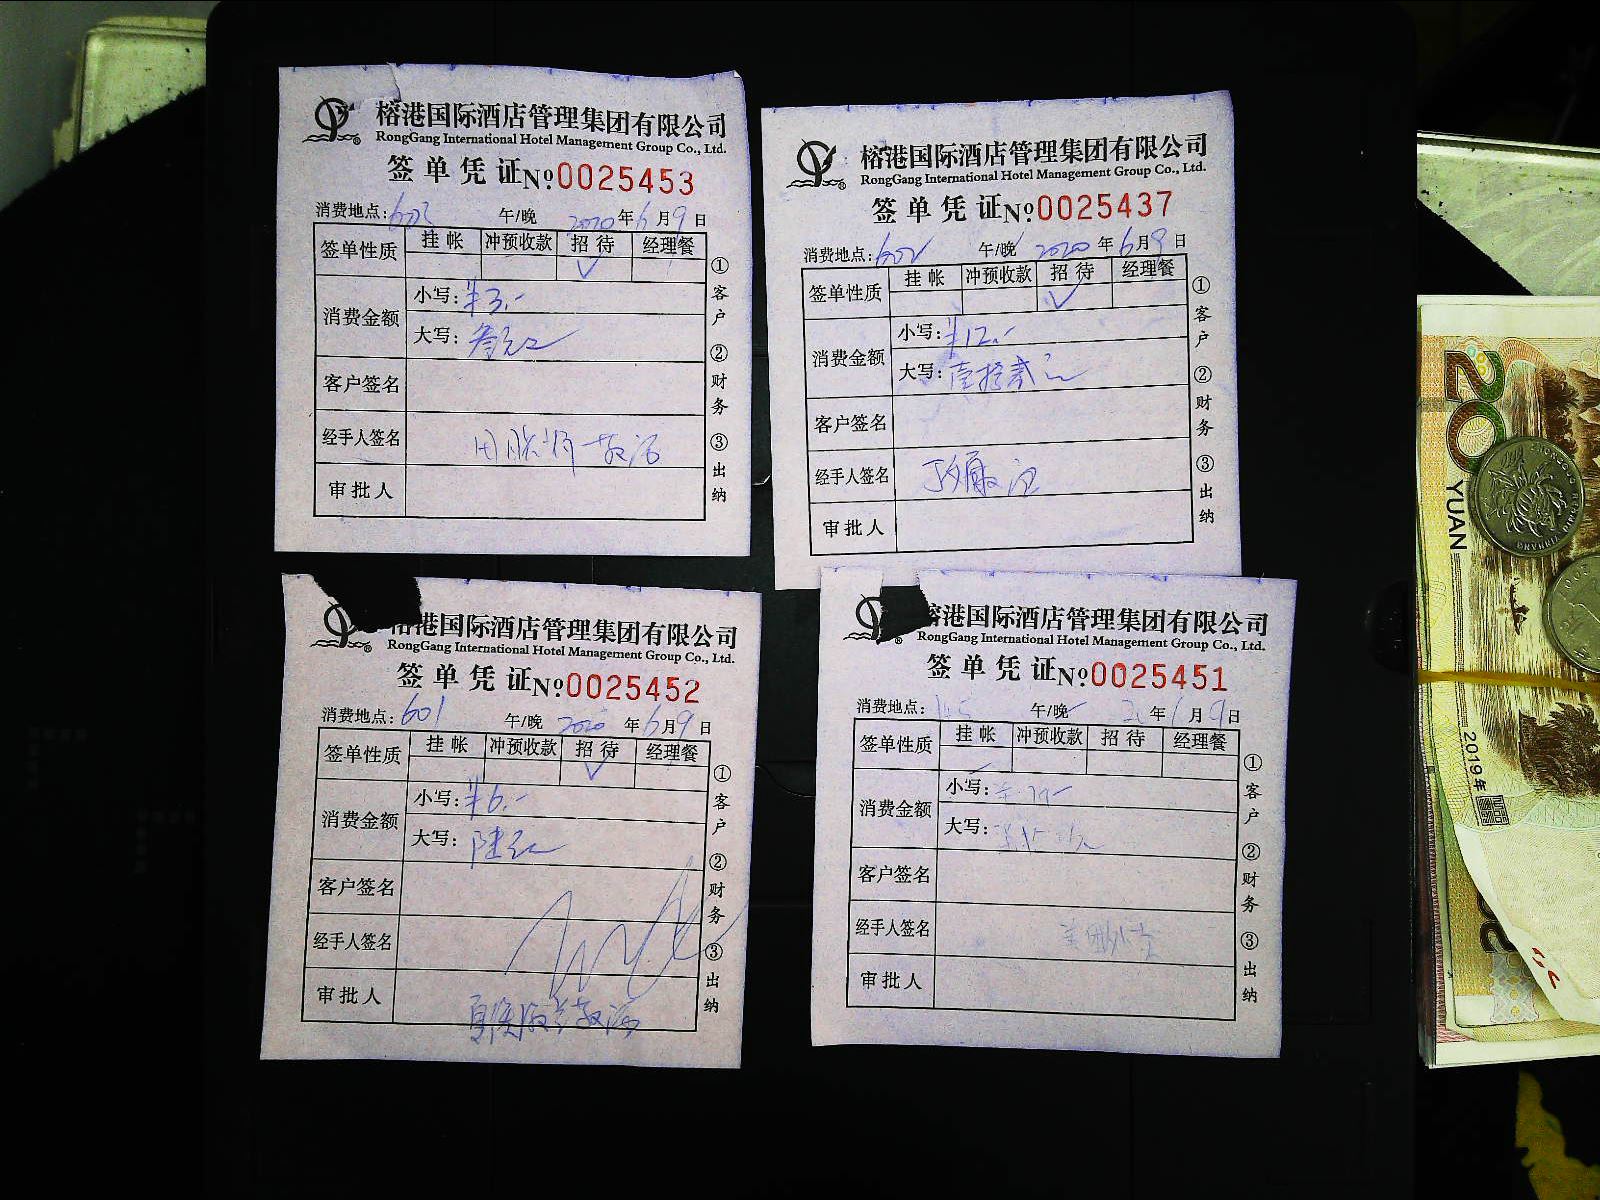 榕港国际酒店管理集团有限公司
RongGang International Hotel Management Group Co., Ltd.
签单凭证 №0025453
消费地点: 603 午/晚 2020年6月9日
签单性质 挂帐 冲预收款 招待 经理餐
✓
消费金额 小写: ¥3.-
大写: 叁元
客户签名
经手人签名
审批人
①客户 ②财务 ③出纳
榕港国际酒店管理集团有限公司
RongGang International Hotel Management Group Co., Ltd.
签单凭证 №0025437
消费地点: 602 午/晚 2020年6月9日
签单性质 挂帐 冲预收款 招待 经理餐
✓
消费金额 小写: ¥12.-
大写: 壹拾贰元
客户签名
经手人签名
审批人
①客户 ②财务 ③出纳
榕港国际酒店管理集团有限公司
RongGang International Hotel Management Group Co., Ltd.
签单凭证 №0025452
消费地点: 601 午/晚 2020年6月9日
签单性质 挂帐 冲预收款 招待 经理餐
✓
消费金额 小写: ¥6.-
大写: 陆元
客户签名
经手人签名
审批人
①客户 ②财务 ③出纳
榕港国际酒店管理集团有限公司
RongGang International Hotel Management Group Co., Ltd.
签单凭证 №0025451
消费地点: 午/晚 年 月9日
签单性质 挂帐 冲预收款 招待 经理餐
消费金额 小写:
大写:
客户签名
经手人签名
审批人
①客户 ②财务 ③出纳
20
YUAN
2019年